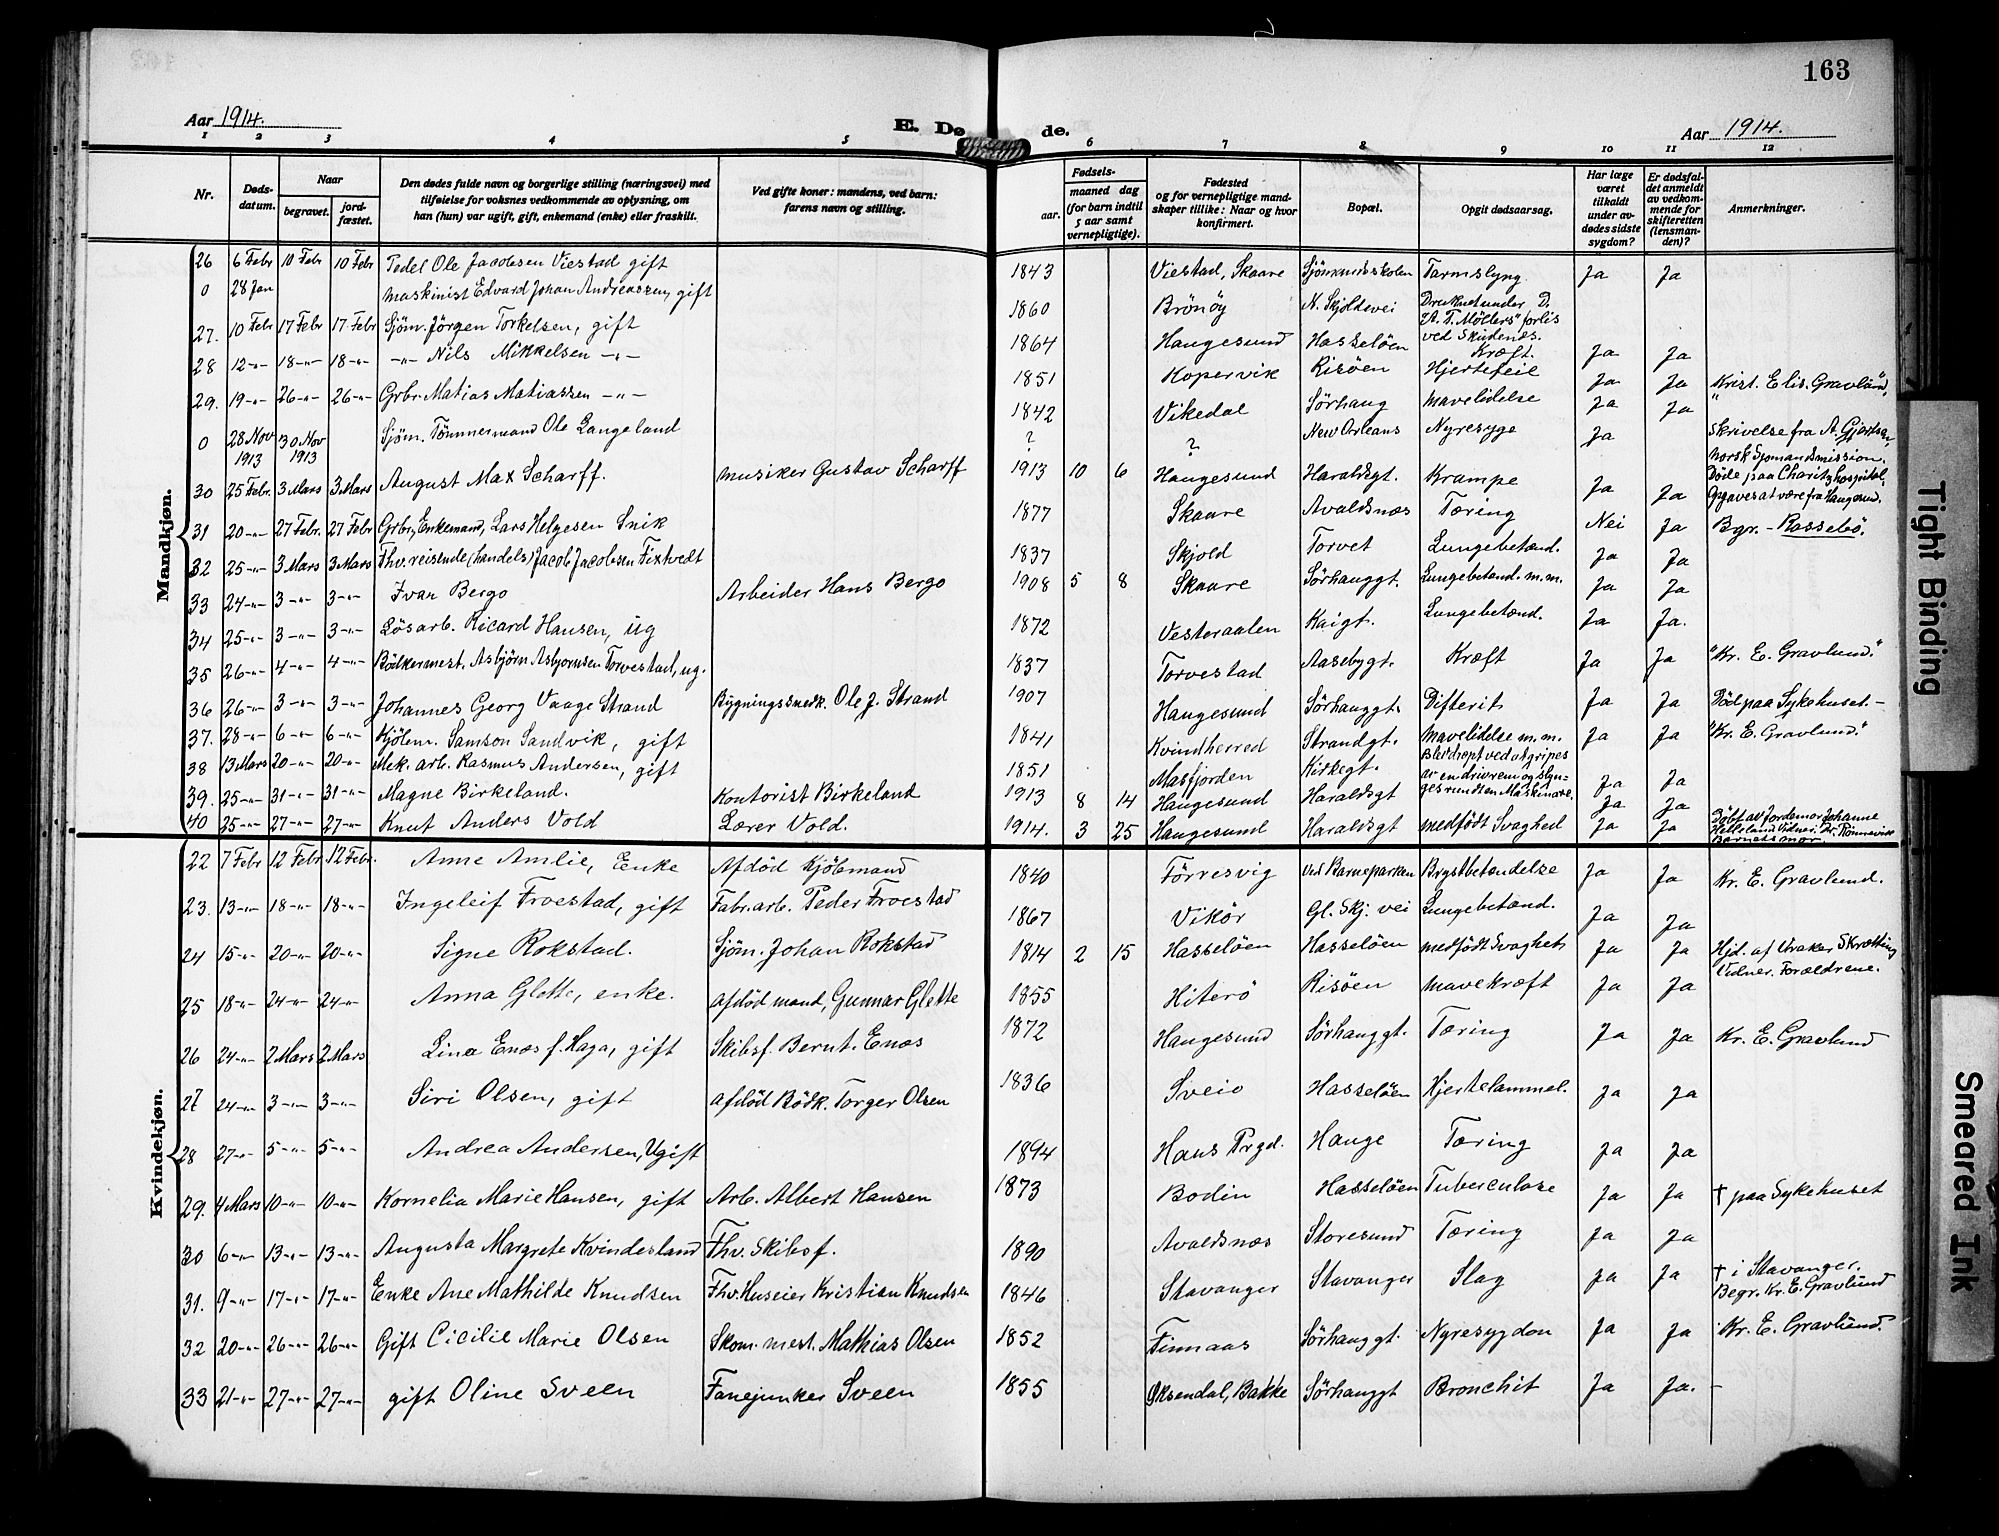 163
Aar 1914.
E. Dø de.
Aar 1914.
1 2 3 4 5 6 7 8 9 10 11 12
Nr. Døds-datum. Naar begravet. jord-fæstet. Den dødes fulde navn og borgerlige stilling (næringsvei) med tilføielse for voksnes vedkommende av oplysning, om han (hun) var ugift, gift, enkemand (enke) eller fraskilt. Ved gifte koner: mandens, ved barn: farens navn og stilling. aar. Fødsels- maaned dag (for barn indtil 5 aar samt vernepligtige). Fødested og for vernepligtige mandskaper tillike: Naar og hvor konfirmert. Bopæl. Opgit dødsaarsag. Har læge været tilkaldt under avdødes sidste sygdom? Er dødsfaldet anmeldt av vedkommende for skifteretten (lensmanden)? Anmerkninger.
Mandkjøn.
26 6 Febr 10 Febr 10 Febr Pedel Ole Jacobsen Viestad gift 1843 Viestad, Skaare Sjömandsskolen Tarmslyng Ja Ja
0 28 Jan Maskinist Edvard Johan Andreassen, gift 1860 Brönöy N. Skjoldevei Druknet under D. "A. T. Möllers" forlis ved Skudenes.
27. 10 Febr 17 Febr 17 Febr Sjöm. Jörgen Torkelsen, gift 1864 Haugesund Hasselöen Kræft. Ja Ja
28 12 -"- 18 -"- 18 -"- -"- Nils Mikkelsen -"- 1851 Kopervik Risöen Hjertefeil Ja Ja Krist. Elis. Gravlund,
29. 19 -"- 26 -"- 26 -"- Grbr. Matias Matiassen -"- 1842 Vikedal Sörhaug Mavelidelse Ja Ja "
0 28 Nov 1913 30 Nov 1913 Sjöm. Tömmermand Ole Langeland ? ? New Orleans Nyresyge Ja Skrivelse fra A. Gjertsen, norsk Sjomandsmission. Döde paa Charity hospital. Opgaves at være fra Haugesund.
30 25 Febr. 3 Mars 3 Mars August Max Scharff. Musiker Gustav Scharff 1913 10 6 Haugesund Haraldsgt. Krampe Ja Ja
31 20 -"- 27 Febr. 27 Febr Grbr, Enkemand, Lars Helgesen Snik 1877 Skaare Avaldsnæs Tæring Nei Ja Bgr. - Rossebö.
32 25 -"- 3 Mars 3 Mars Fhv. reisende (handels) Jacob Jacobsen Fixtvedt 1837 Skjold Torvet Lungebetænd. Ja Ja
33 24 -"- 3 -"- 3 -"- Ivar Bergo Arbeider Hans Bergo 1908 5 8 Skaare Sörhauggt. Lungebetænd. m.m. Ja Ja
34 25 -"- 3 -"- 3 -"- Lösarb. Ricard Hansen, ug 1872 Vesteraalen Kaigt. Lungebetænd. Ja Ja.
35 26 -"- 4 -"- 4 -"- Bödkermest. Asbjörn Asbjornsen Torvestad, ug. 1837 Torvestad Aasebygt. Kræft Ja Ja "Kr. E. Gravlund."
36 26 -"- 3 -"- 3 -"- Johannes Georg Vaage Strand Bygningssnedk. Ole J. Strand 1907 Haugesund Sörhauggt. Difterit Ja Ja Död paa Sykehuset. -
37. 28 -"- 6 -"- 6 -"- Kjölem. Samson Sandvik, gift 1841 Kvindherred Strandgt. Mavelidelse m.m. Ja Ja "Kr. E. Gravlund."
38 13 Mars 20 -"- 20 -"- Mek. arb. Rasmus Andersen, gift 1851 Masfjorden Kirkegt. Blev dræpt ved at gripes av en drivrem og slynges rundt en Maskinaxe. Ja Ja
39. 25 -"- 31 -"- 31 -"- Magne Birkeland. Kontorist Birkeland 1913 8 14 Haugesund Haraldsgt Ja Ja
40 25 -"- 27 -"- 27 -"- Knut Anders Vold Lærer Vold. 1914. 3 25 Haugesund Haraldsgt medfödt Svaghed Ja Ja Döbt av Jordemor Johanne Helleland Vidner: Dr. Rönnevik Barnets mor.
Kvindekjøn.
22 7 Febr 12 Febr 12 Febr. Anne Amlie, Enke Afdöd Kjöbmand 1840 Förresvig Ved Barneparken Brystbetændelse Ja Ja Kr. E. Gravlund.
23. 13 -"- 18 -"- 18 -"- Ingeleif Froestad, gift Fabr. arb. Peder Froestad 1867 Vikör Gl. Skj. vei Lungebetænd. Ja Ja
24 15 -"- 20 -"- 20 -"- Signe Rokstad. Sjöm. Johan Rokstad 1814 2 15 Hasselöen Hasselöen medfödt Svaghet Ja Ja Hjd. af Vraker Skrætting Vidner. Forældrene.
25 18 -"- 24 -"- 24 -"- Anna Glette, enke. Afdöd mand, Gunnar Glette 1855 Hiterö Risöen mavekræft Ja Ja
26 24 -"- 2 Mars 2 Mars Lina Enæs f. Haga, gift Skibsf. Bernt. Enæs 1872 Haugesund Sörhauggt. Tæring Ja Ja Kr. E. Gravlund
27 24 -"- 3 -"- 3 -"- Siri Olsen, gift afdöd Bödk. Torger Olsen 1836 Sveio Hasselöen Hjertelammel. Ja Ja
28 27 -"- 5 -"- 5 -"- Andrea Andersen, Ugift 1894 Haus Prgd. Hauge Tæring Ja Ja
29. 4 Mars 10 -"- 10 -"- Kornelia Marie Hansen, gift Arb. Albert Hansen 1873 Bodin Hasselöen Tuberculose Ja Ja † paa Sykehuset
30 6 -"- 13 -"- 13 -"- Augusta Margrete Kvindesland Fhv. Skibsf. 1890 Avaldsnæs Storesund Tæring Ja Ja
31. 9 -"- 17 -"- 17 -"- Enke Ane Mathilde Knudsen Fhv. Huseier Kristian Knudsen 1846 Stavanger Stavanger Slag Ja Ja † i Stavanger. Begr. Kr. E. Gravlund
32 20 -"- 26 -"- 26 -"- Gift Cicilie Marie Olsen Skom. mest. Mathias Olsen 1852 Finnaas Sörhauggt. Nyresygdom Ja Ja Kr. E. Gravlund.
33 21 -"- 27 -"- 27 -"- gift Oline Sveen Fanejunker Sveen 1855 Øksendal, Bakke Sörhauggt Bronchit Ja Ja. -
Tight Binding
Smeared Ink